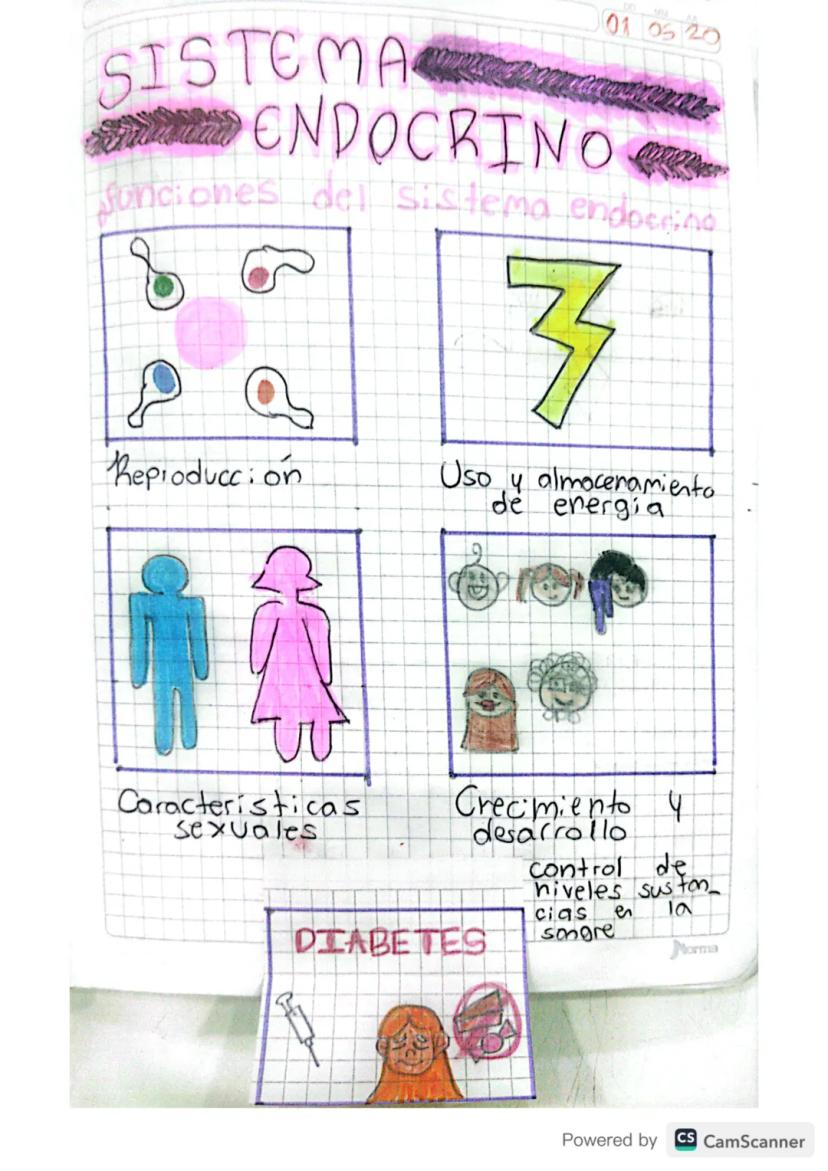 DD MM AA
01 05 20
SISTEMA
ENDOCRINO
funciones del sistema endocrino
Reproducción
Uso y almaceramiento
de energía
Características
sexuales
Crecimiento y
desarrollo
control de
niveles sustan_
cias en la
sangre
Norma
DIABETES
Powered by CS CamScanner